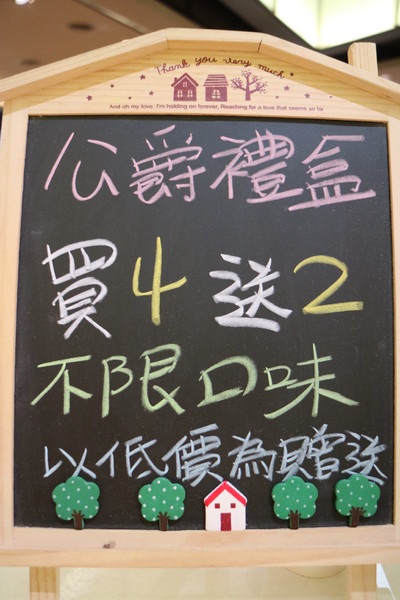 Thank you very much
And oh my love. I'm holding on forever, Reaching for a love that seems so far
公爵禮盒
買4送2
不限口味
以低價為贈送